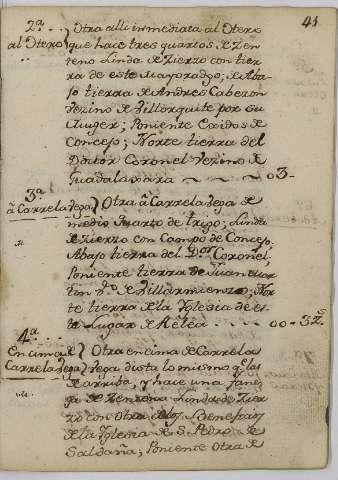 41
2ª... Otra alli inmediata al Otero
al Otero que hace tres quartos de Zen-
teno Linda de Zierzo con tier-
ra de este Mayorazgo; de Aba-
jo tierra de Andres Cabezon
Vezino de Villorquite por su
Muger; Poniente Exidos de
Concejo; Norte tierra del
Doctor Coronel Vezino de
Guadalaxara 0-3-
3ª Otra â Carrela Vega de
â Carrela Vega
medio quarto de trigo; Linda
de Zierzo con Campo de Concejo
Abajo tierra del Dor Coronel
Poniente tierra de Juan Mar-
tin de Villarmienzo; Nor-
te tierra de la Yglesia de es-
te Lugar de Relea 00-3
4ª
Encima de Otra encima de Carrela
Carrela Vega Vega dista lo mismo q las
de arriba, y hace una fane-
ga de Zentena Linda de Zier-
zo con otra de los Beneficios
de la Yglesia de S. Pedro de
Saldaña; Poniente Otra de